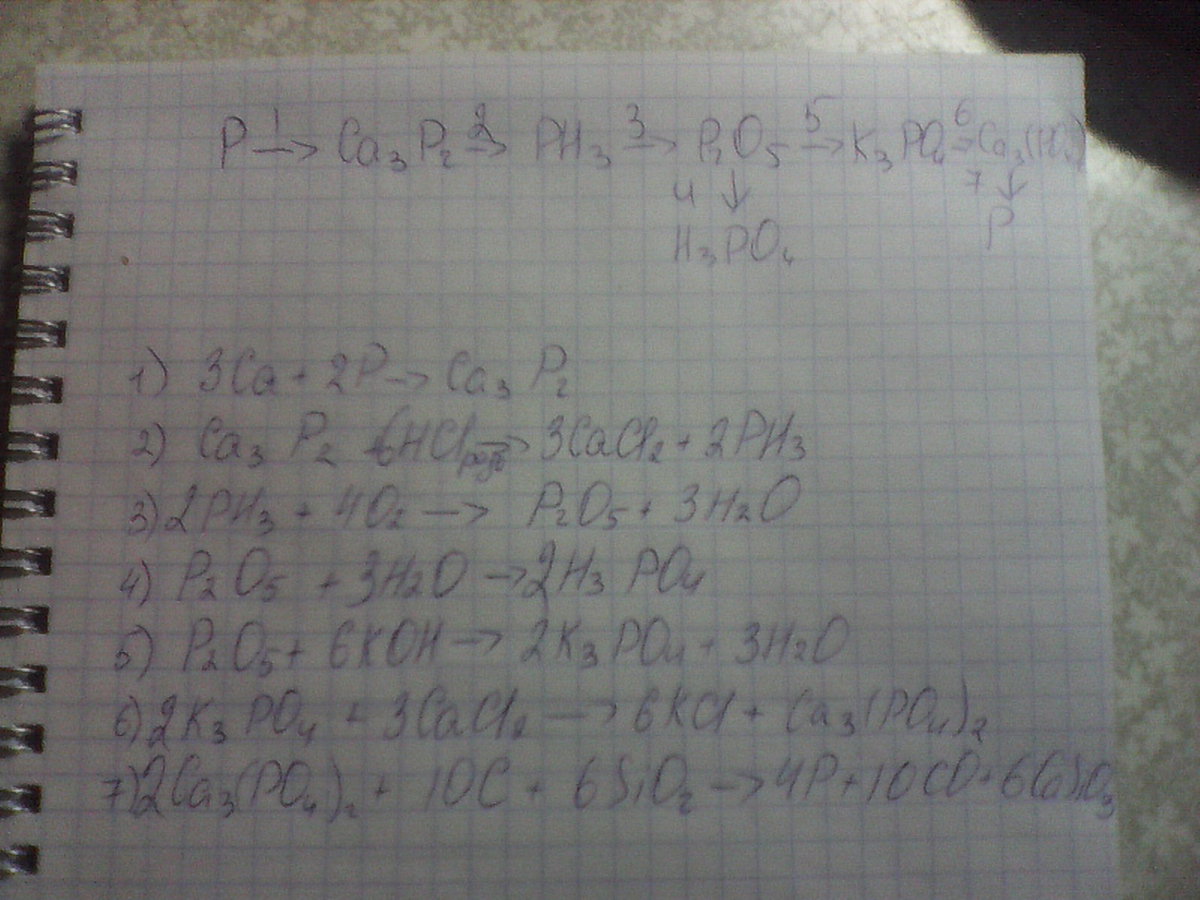 P 1→ Ca₃P₂ 2→ PH₃ 3→ P₂O₅ 5→ K₃PO₄ 6→ Ca₃(PO₄)
4 ↓ 7 ↓
H₃PO₄ P
1) 3Ca + 2P → Ca₃P₂
2) Ca₃P₂ + 6HCl → 3CaCl₂ + 2PH₃
3) 2PH₃ + 4O₂ → P₂O₅ + 3H₂O
4) P₂O₅ + 3H₂O → 2H₃PO₄
5) P₂O₅ + 6KOH → 2K₃PO₄ + 3H₂O
6) 2K₃PO₄ + 3CaCl₂ → 6KCl + Ca₃(PO₄)₂
7) 2Ca₃(PO₄)₂ + 10C + 6SiO₂ → 4P + 10CO + 6CaSiO₃